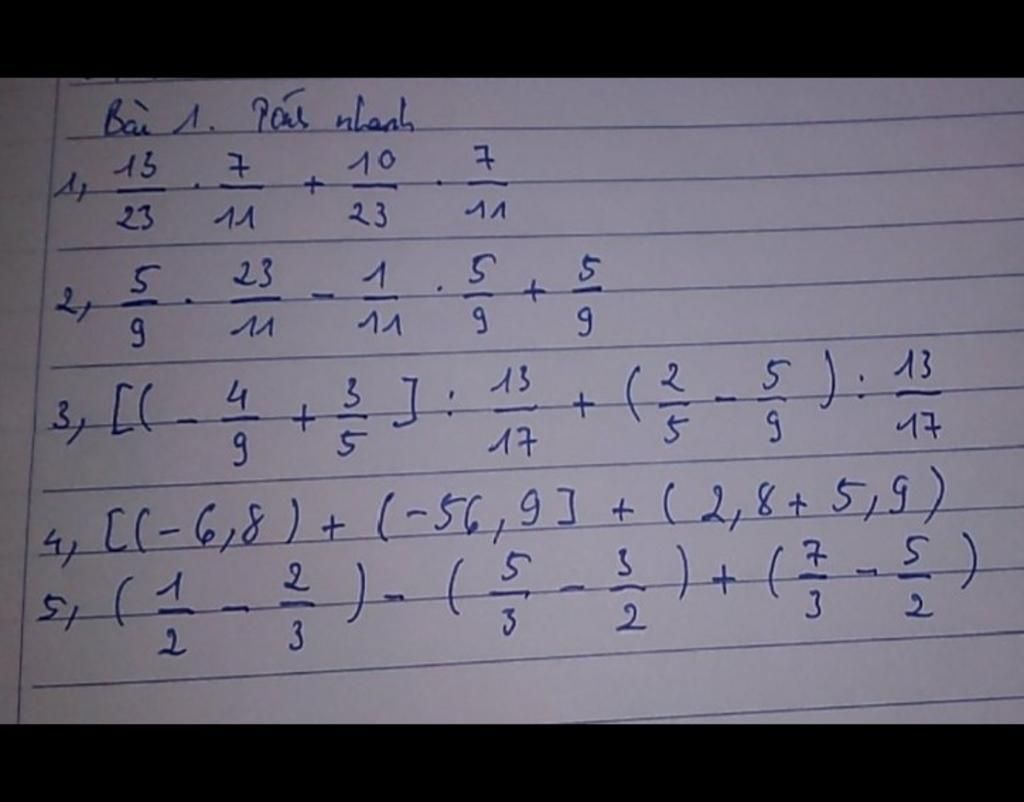 Bài 1. Tính nhanh
1, 13/23 . 7/11 + 10/23 . 7/11
2, 5/9 . 23/11 - 1/11 . 5/9 + 5/9
3, [(- 4/9 + 3/5 ] : 13/17 + ( 2/5 - 5/9 ) : 13/17
4, [(-6,8) + (-56,9] + (2,8 + 5,9)
5, ( 1/2 - 2/3 ) - ( 5/3 - 3/2 ) + ( 7/3 - 5/2 )